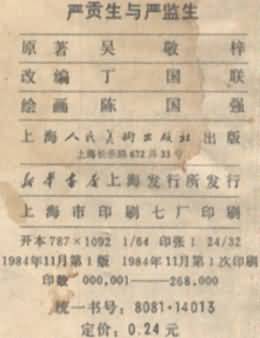 严贡生与严监生
原著 吴敬梓
改编 丁国联
绘画 陈国强
上海人民美術出版社出版
上海长乐路672弄33号
新华書店上海发行所发行
上海市印刷七厂印刷
开本787×1092 1/64 印张1 24/32
1984年11月第1版 1984年11月第1次印刷
印数 000,001——268.000
统一书号:8081·14013
定价:0.24元